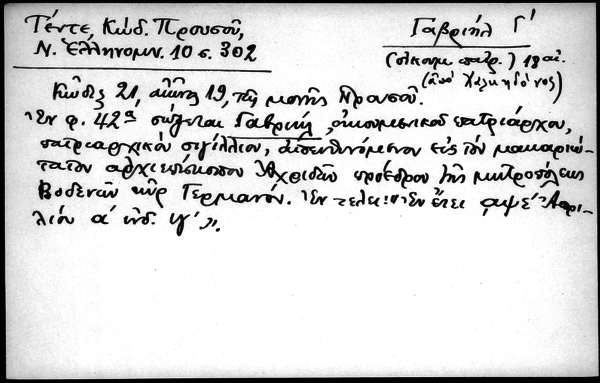 Τέντε, Κώδ. Προυσοῦ,
Ν. Ἑλληνομν. 10 σ. 302
Γαβριήλ Γ΄
(οἰκουμ πατρ.) 18 αἰ.
(ἀπό Χαλκηδόνος)
Κῶδιξ 21, αἰῶνος 19, τῆς μονῆς Προυσοῦ.
Ἐν φ. 42α σῴζεται Γαβριήλ, οἰκουμενικοῦ πατριάρχου,
πατριαρχικόν σιγίλλιον, ἀπευθυνόμενον εἰς τόν μακαριώ-
τατον ἀρχιεπίσκοπον Ἀχριδῶν πρόεδρον τῆς μητροπόλεως
Βοδενῶν κύρ Γερμανόν. Ἐν τέλει: "Ἐν ἔτει ͵αψε΄ Ἀπρι-
λίου α΄ ἰνδ. ιγ΄".